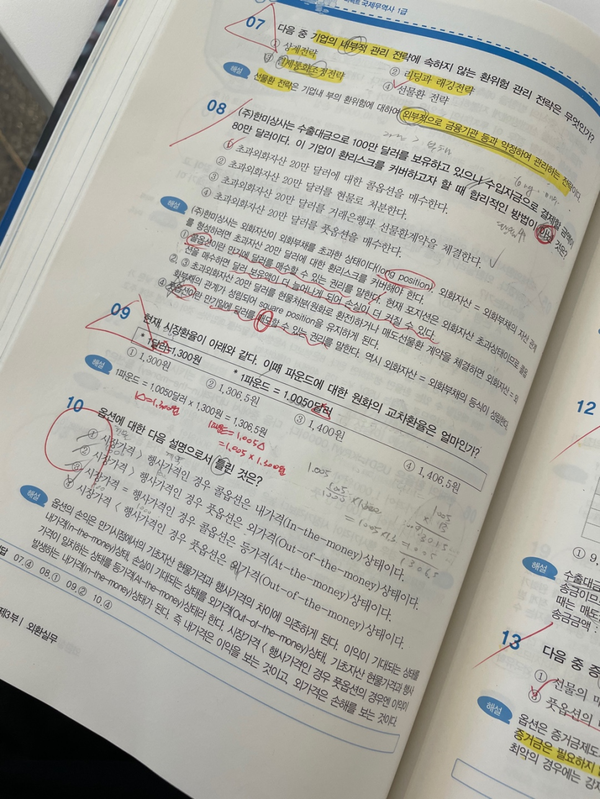 국제무역사 1급
07 다음 중 기업의 내부적 관리 전략에 속하지 않는 환위험 관리 전략은 무엇인가?
① 상계전략 ② 리딩과 래깅전략
④ 선물환 전략
해설 선물환 전략은 기업내 부의 환위험에 대하여 외부적으로 금융기관 등과 약정하여 관리하는 전략이다.
08 (주)한미상사는 수출대금으로 100만 달러를 보유하고 있으나 수입자금으로 결제할 금액은
80만 달러이다. 이 기업이 환리스크를 커버하고자 할 때 합리적인 방법이 아닌 것은?
① 초과외화자산 20만 달러에 대한 콜옵션을 매수한다.
② 초과외화자산 20만 달러를 현물로 처분한다.
③ 초과외화자산 20만 달러를 거래은행과 선물환계약을 체결한다.
④ 초과외화자산 20만 달러를 풋옵션을 매수한다.
해설 (주)한미상사는 외화자산이 외화부채를 초과한 상태이다(long position). 외화자산 = 외화부채의
를 형성하려면 초과자산 20만 달러에 대한 환리스크를 커버해야 한다.
① 콜옵션이란 만기에 달러를 매수할 수 있는 권리를 말한다. 현재 포지션은 외화자산 초과상태이므로
션을 매수하면 달러 보유액이 더 늘어나게 되어 손실이 더 커질 수 있다.
②, ③ 초과외화자산 20만 달러를 현물처분(원화로 환전)하거나 매도선물환 계약을 체결하면 외화자산 =
화부채의 관계가 성립되어 square position을 유지하게 된다.
④ 풋옵션이란 만기일에 달러를 매도할 수 있는 권리를 말한다. 역시 외화자산 = 외화부채의 등식이 성립한다.
09 현재 시장환율이 아래와 같다. 이때 파운드에 대한 원화의 교차환율은 얼마인가?
* 1달러=1,300원 * 1파운드 = 1.0050달러
① 1,300원 ② 1,306.5원 ③ 1,400원 ④ 1,406.5원
해설 1파운드 = 1.0050달러 x 1,300원 = 1,306.5원
10 옵션에 대한 다음 설명으로서 틀린 것은?
① 시장가격 > 행사가격인 경우 콜옵션은 내가격(In-the-money)상태이다.
② 시장가격 > 행사가격인 경우 풋옵션은 외가격(Out-of-the-money)상태이다.
③ 시장가격 = 행사가격인 경우 콜옵션은 등가격(At-the-money)상태이다.
④ 시장가격 < 행사가격인 경우 풋옵션은 외가격(Out-of-the-money)상태이다.
해설 옵션의 손익은 만기시점에서의 기초자산 현물가격과 행사가격의 차이에 의존하게 된다. 이익이 기대되는 상태를
내가격(In-the-money)상태, 손실이 기대되는 상태를 외가격(Out-of-the-money)상태, 기초자산 현물가격과 행사
가격이 일치하는 상태를 등가격(At-the-money)상태라 한다. 시장가격 < 행사가격인 경우 풋옵션의 경우엔 이익이
발생하는 내가격(In-the-money)상태가 된다. 즉 내가격은 이익을 보는 것이고, 외가격은 손해를 보는 것이다.
답 07.④ 08.① 09.② 10.④
제3부 | 외환실무
12
① 9.
해설 수출대금
송금이므
때는 매도
송금금액 :
13 다음 중
① 선물의
해설 옵션은 증거금제도
증거금은 필요하지
최악의 경우에는